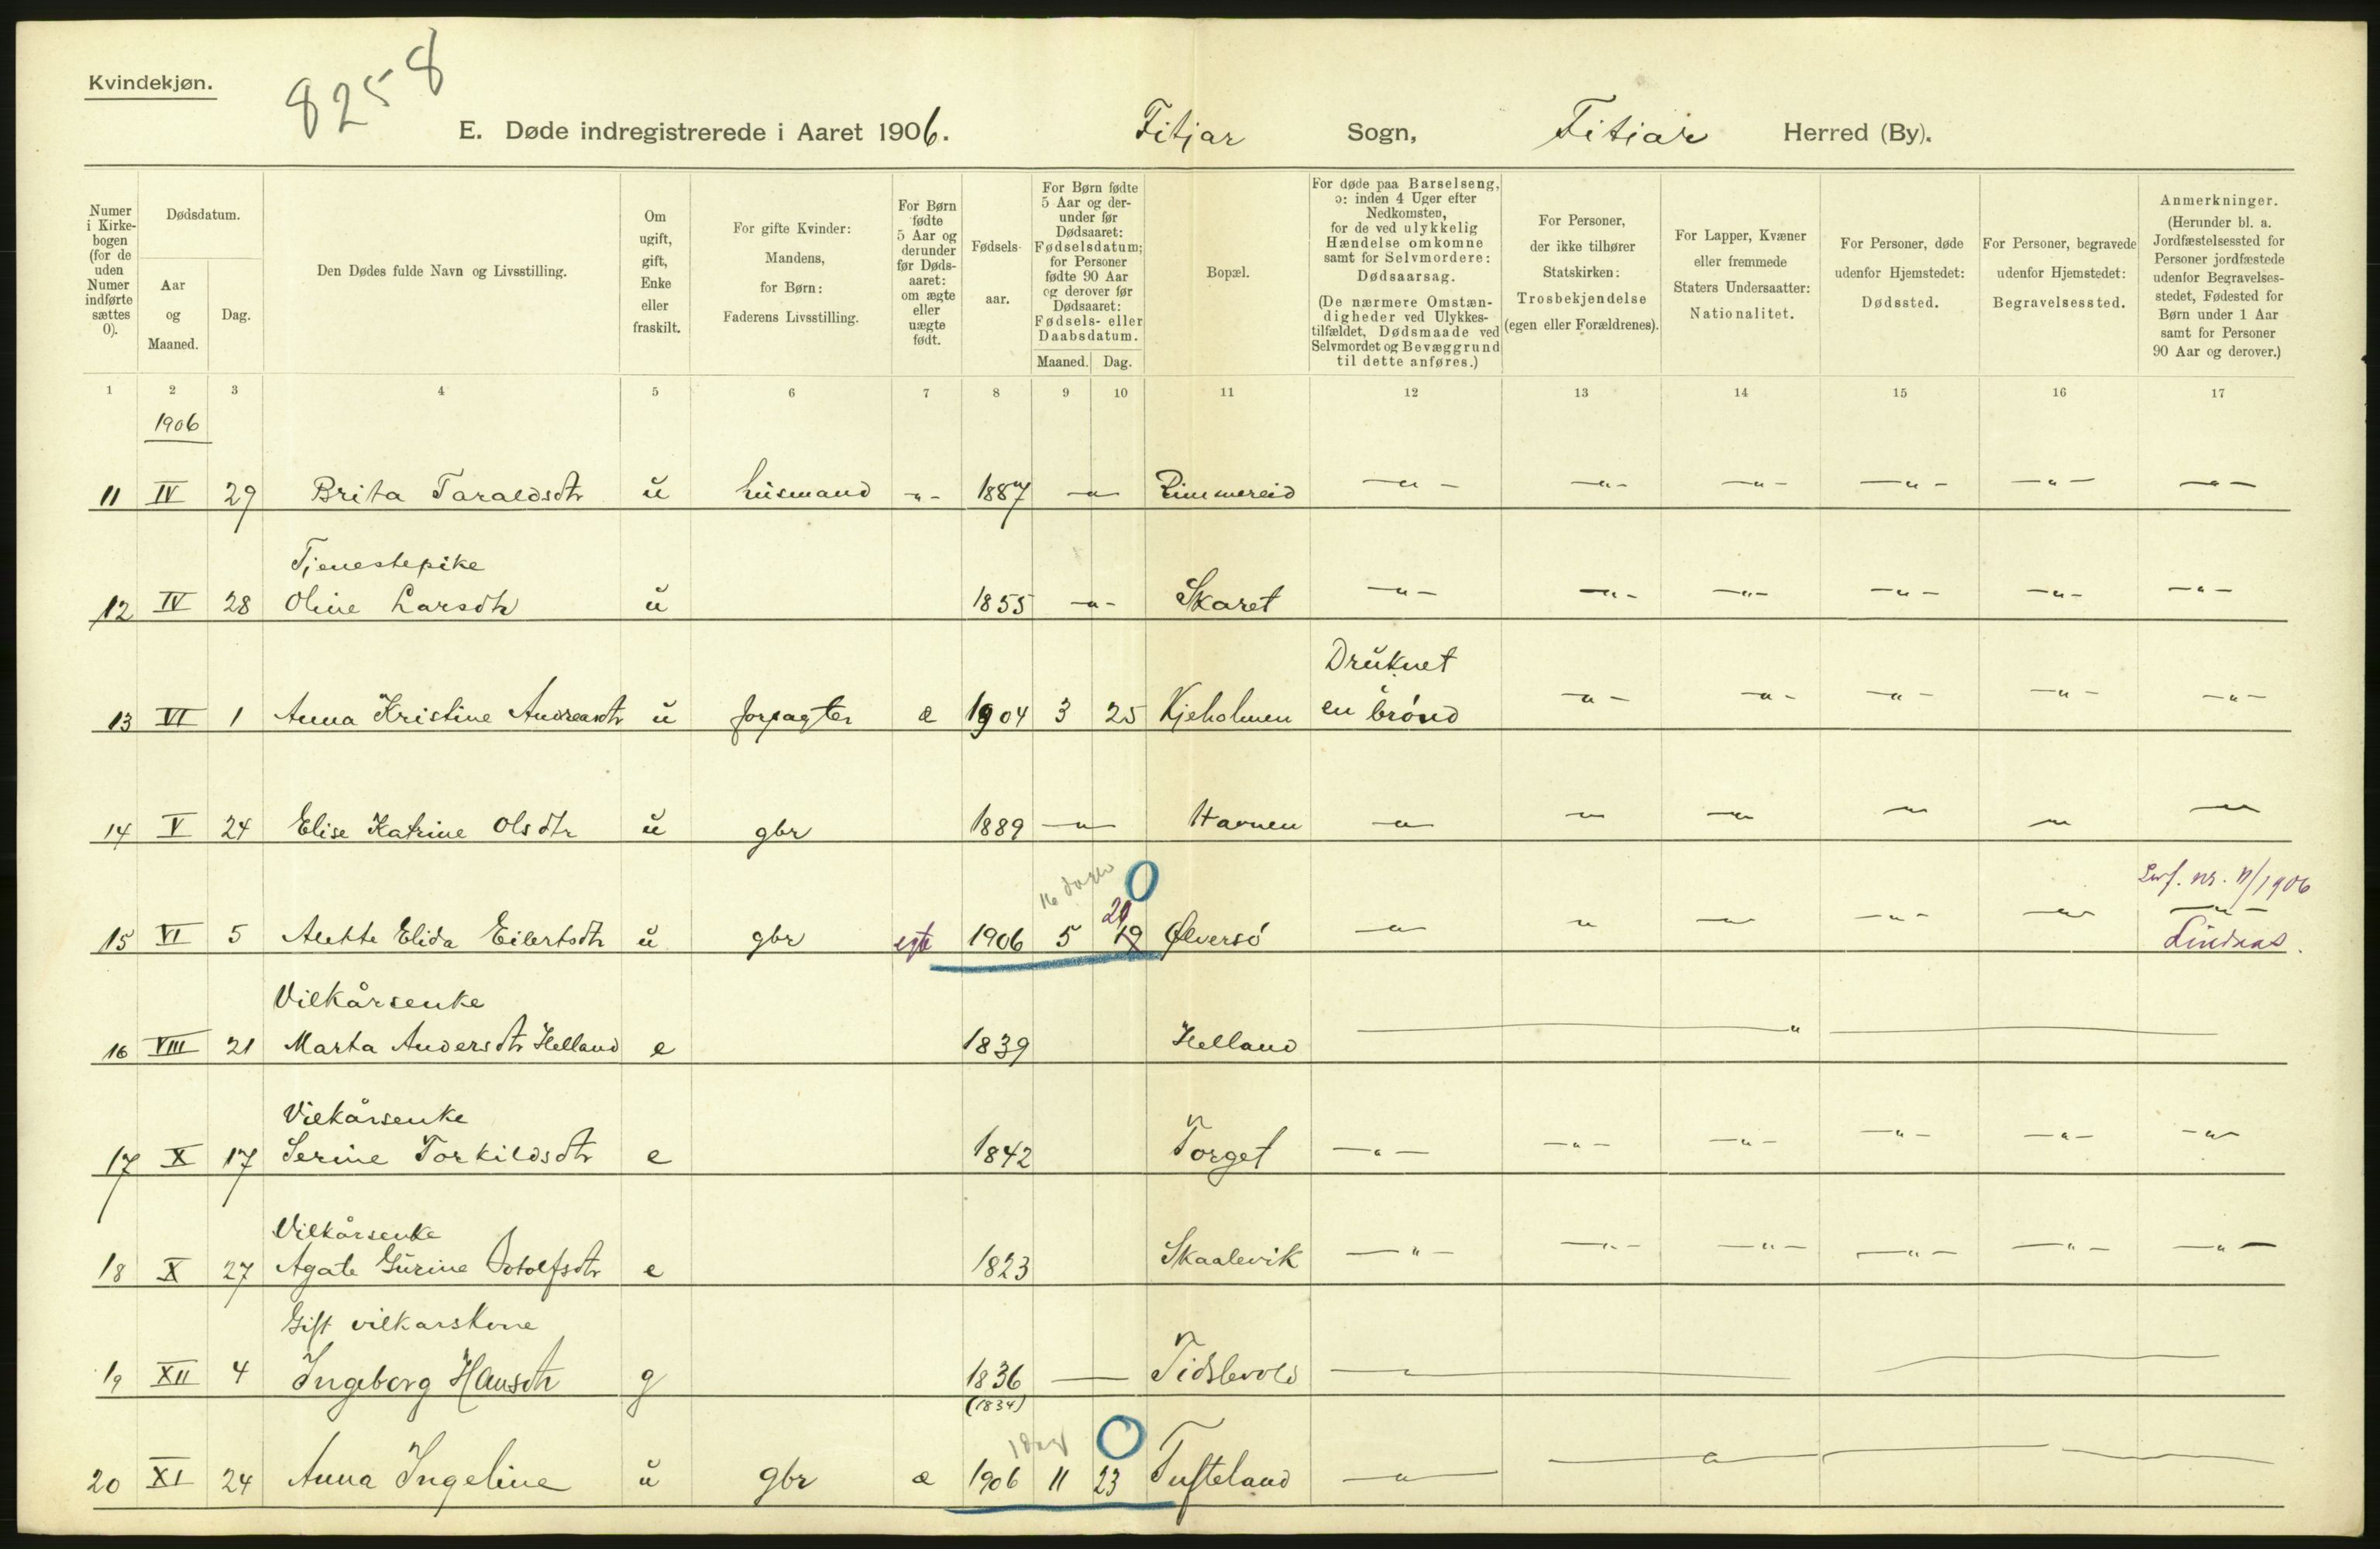 Kvindekjøn.
8258
E. Døde indregistrerede i Aaret 1906. Fitjar Sogn, Fitjar Herred (By).
Numer i Kirkebogen (for de uden Numer indførte sættes 0).
Dødsdatum.
Aar og Maaned.
Dag.
Den Dødes fulde Navn og Livsstilling.
Om ugift, gift, Enke eller fraskilt.
For gifte Kvinder: Mandens, for Børn: Faderens Livsstilling.
For Børn fødte 5 Aar og derunder før Dødsaaret: om ægte eller uægte født.
Fødselsaar.
For Børn fødte 5 Aar og derunder før Dødsaaret: Fødselsdatum; for Personer fødte 90 Aar og derover før Dødsaaret: Fødsels- eller Daabsdatum.
Maaned. Dag.
Bopæl.
For døde paa Barselseng, ɔ: inden 4 Uger efter Nedkomsten, for de ved ulykkelig Hændelse omkomne samt for Selvmordere: Dødsaarsag.
(De nærmere Omstændigheder ved Ulykkestilfældet, Dødsmaade ved Selvmordet og Bevæggrund til dette anføres.)
For Personer, der ikke tilhører Statskirken: Trosbekjendelse (egen eller Forældrenes).
For Lapper, Kvæner eller fremmede Staters Undersaatter: Nationalitet.
For Personer, døde udenfor Hjemstedet: Dødssted.
For Personer, begravede udenfor Hjemstedet: Begravelsessted.
Anmerkninger.
(Herunder bl. a. Jordfæstelsessted for Personer jordfæstede udenfor Begravelsesstedet, Fødested for Børn under 1 Aar samt for Personer 90 Aar og derover.)
1 2 3 4 5 6 7 8 9 10 11 12 13 14 15 16 17
1906
11 IV 29 Brita Taraldsdtr u husmand -"- 1887 -"- Rimmereid -"- -"- -"- -"- -"- -"-
Tjenestepike
12 IV 28 Oline Larsdtr u 1855 -"- Skaret -"- -"- -"- -"- -"- -"-
Druknet
13 VI 1 Anna Kristine Andreasdtr u forpagter æ 1904 3 25 Kjeholmen en brønd -"- -"- -"- -"- -"-
14 V 24 Elise Katrine Olsdtr u gbr 1889 -"- Havnen -"- -"- -"- -"- -"- -"-
16 dage 0
20
15 VI 5 Alette Elida Eilertsdtr u gbr egte 1906 5 19 Ølversø -"- -"- -"- -"- -"- -"-
Lindaas.
Vilkårsenke
16 VIII 21 Marta Andersdtr Helland e 1839 Helland "
Vilkårsenke
17 X 17 Serine Torkildsdtr e 1842 Torget -"- -"- -"- -"- -"- -"-
Vilkårsenke
18 X 27 Agate Gurine e 1823 Skaalevik -"- -"- -"- -"- -"- -"-
Gift vilkarskone
19 XII 4 Ingeborg Hansdtr g 1836 — Tislevold
(1834)
1 dag 0
20 XI 24 Anna Ingeline u gbr æ 1906 11 23 Tufteland -"- "